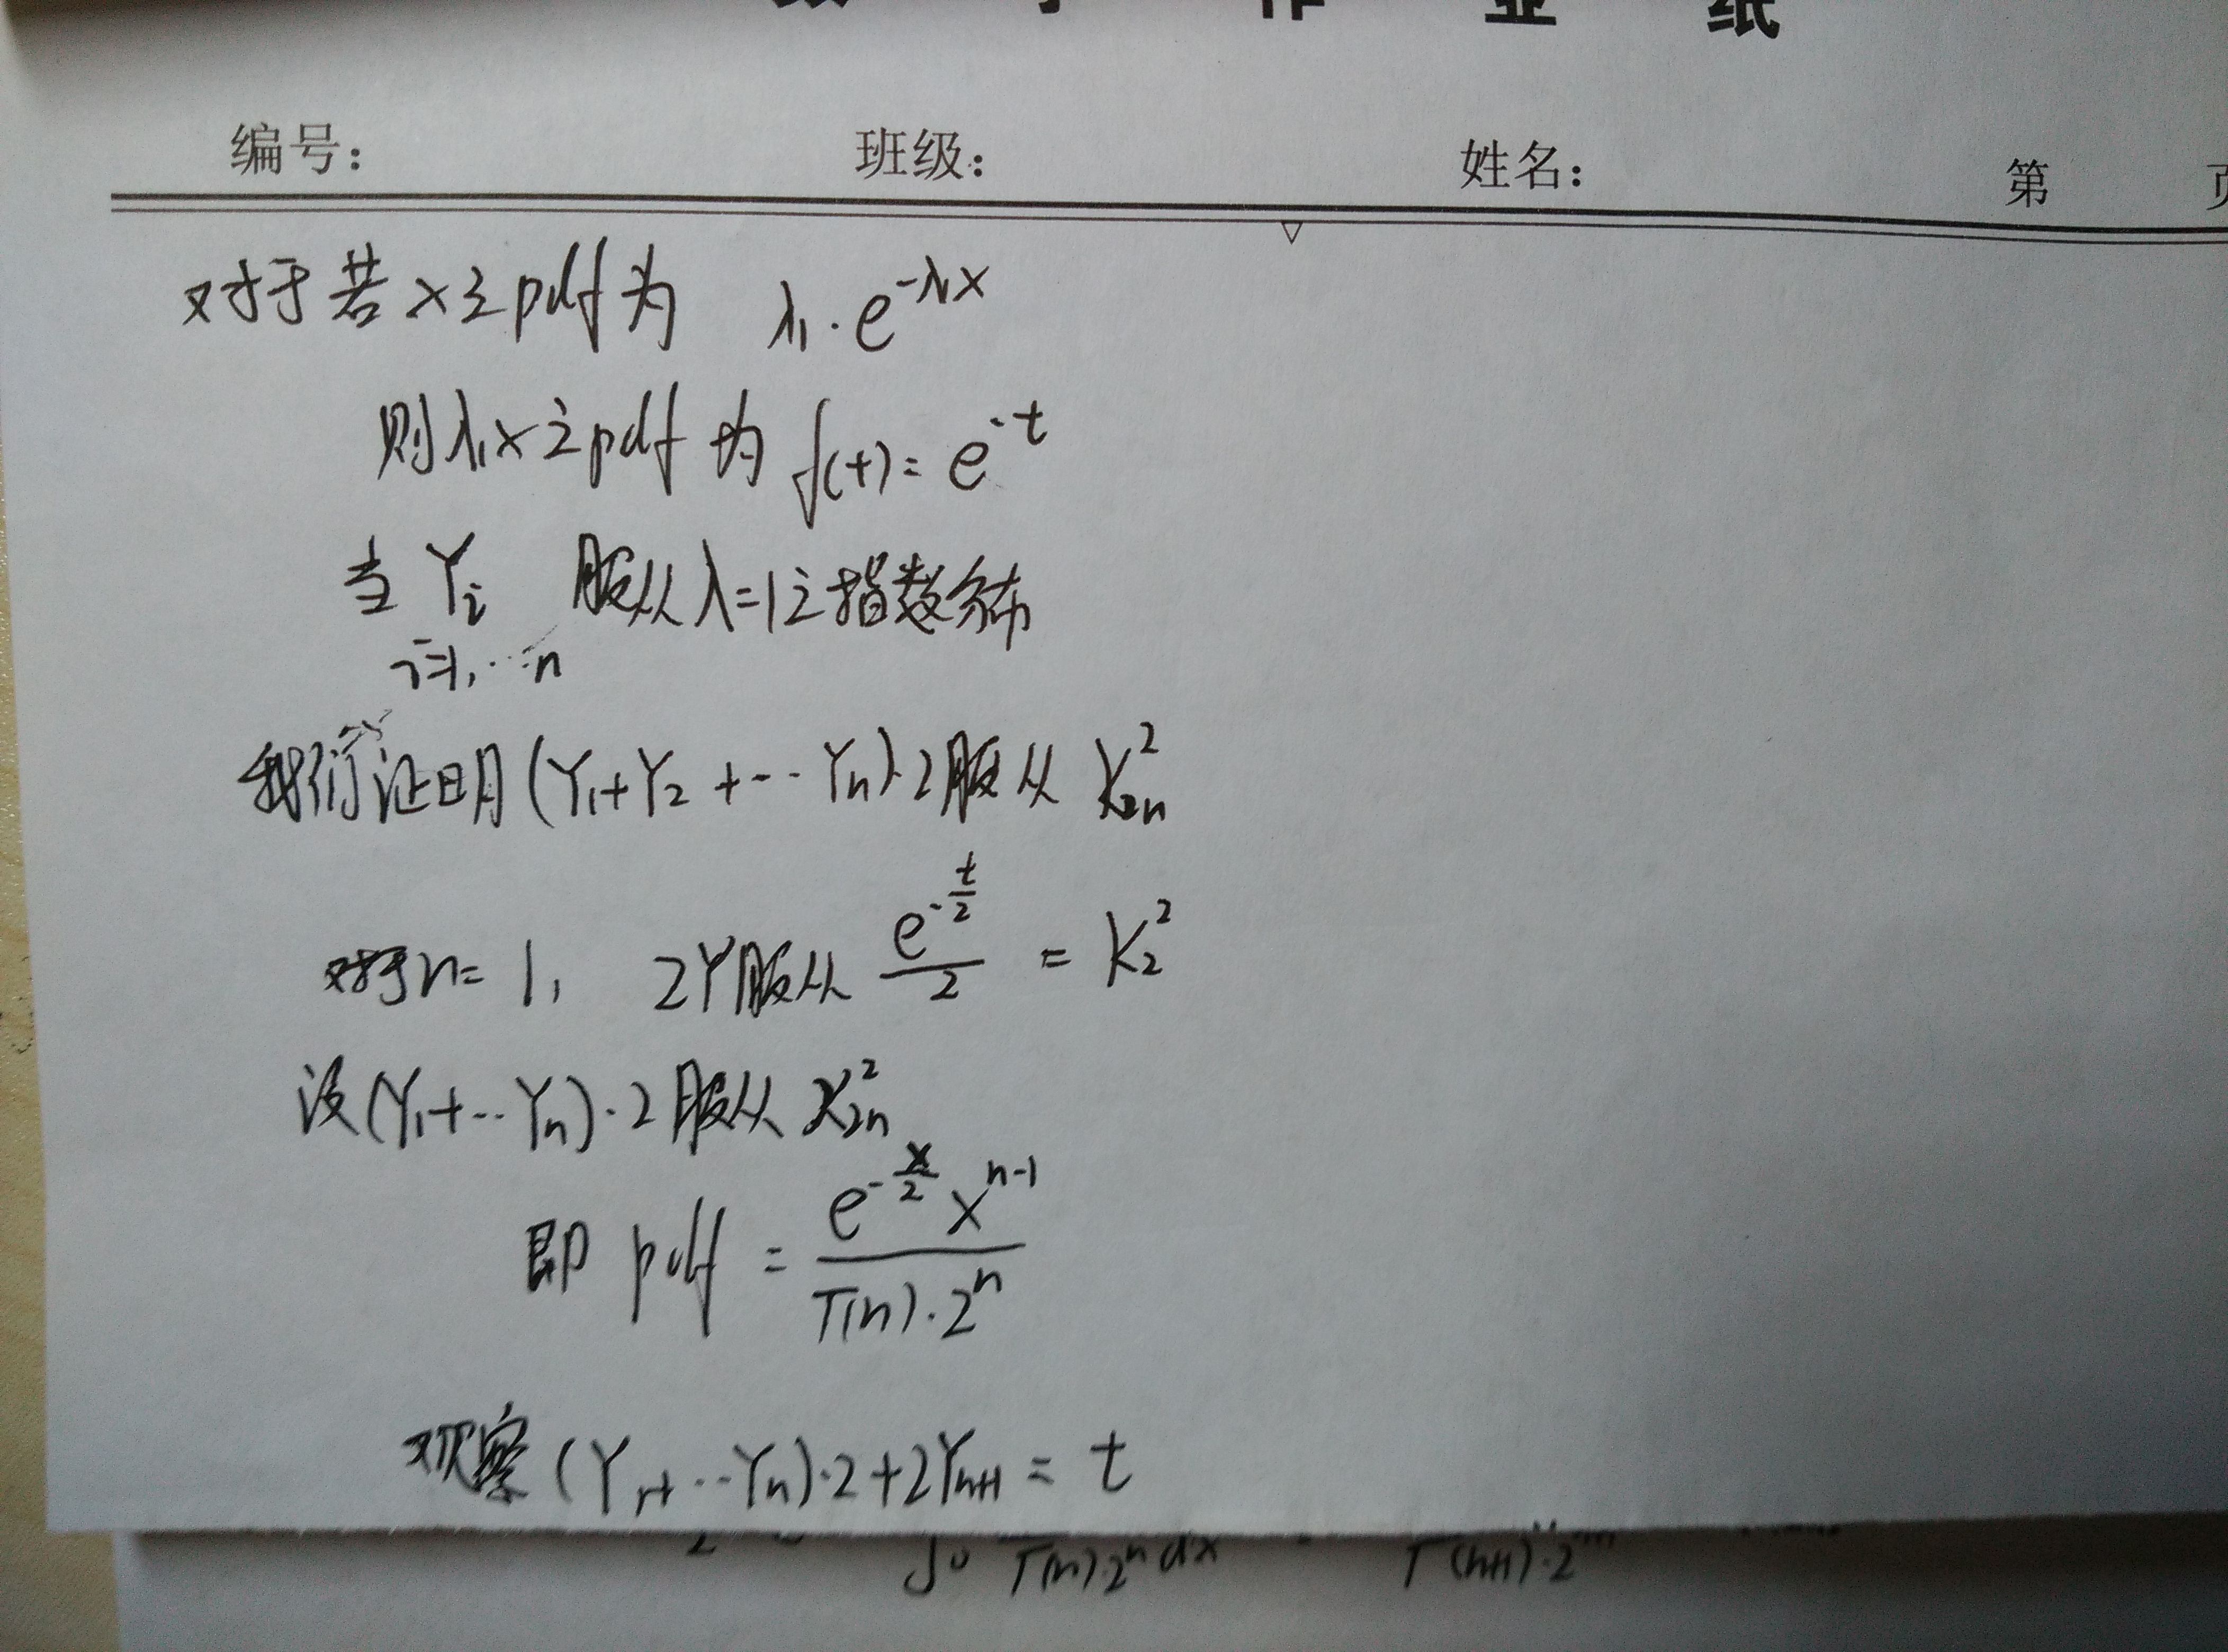 作 业 纸
编号: 班级: 姓名: 第 页
对于若x之pdf为 λ₁·e^{-λ₁x}
则λ₁x之pdf为 f(t)=e^{-t}
当 Y_i 服从λ=1之指数分布
i=1,…n
我们证明(Y₁+Y₂+…Y_n)·2服从 χ²_{2n}
对于n=1, 2Y服从 e^{-t/2}/2 = χ²_2
设(Y₁+…Y_n)·2服从 χ²_{2n}
即 pdf = e^{-x/2} x^{n-1} / (Γ(n)·2^n)
观察(Y₁+…Y_n)·2+2Y_{n+1} = t
Γ(n)·2^n dx Γ(n+1)·2